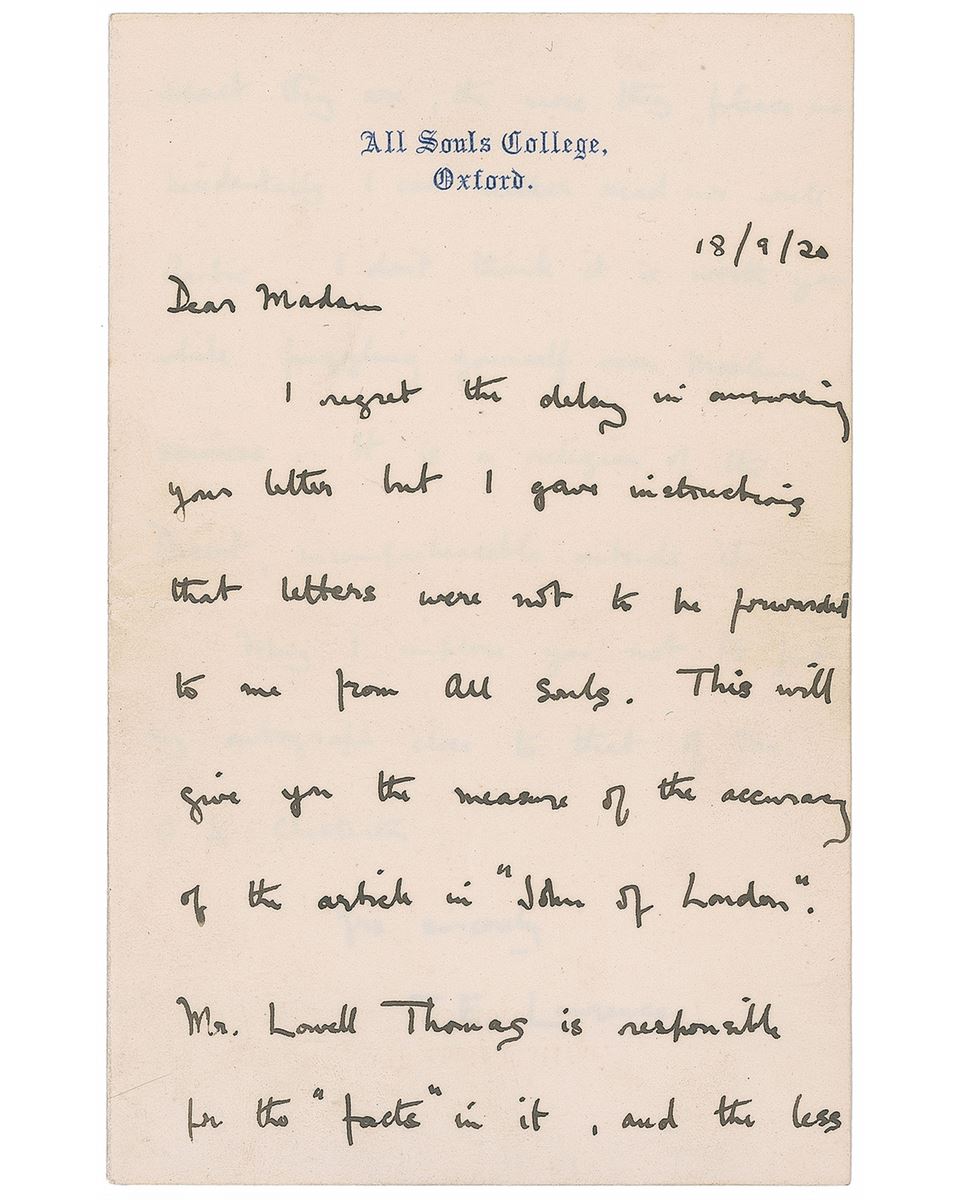 All Souls College,
Oxford.
18/9/20
Dear Madam
I regret the delay in answering
your letter but I gave instructions
that letters were not to be forwarded
to me from All Souls. This will
give you the measure of the accuracy
of the article in "John of London".
Mr. Lowell Thomas is responsible
for the "facts" in it, and the less